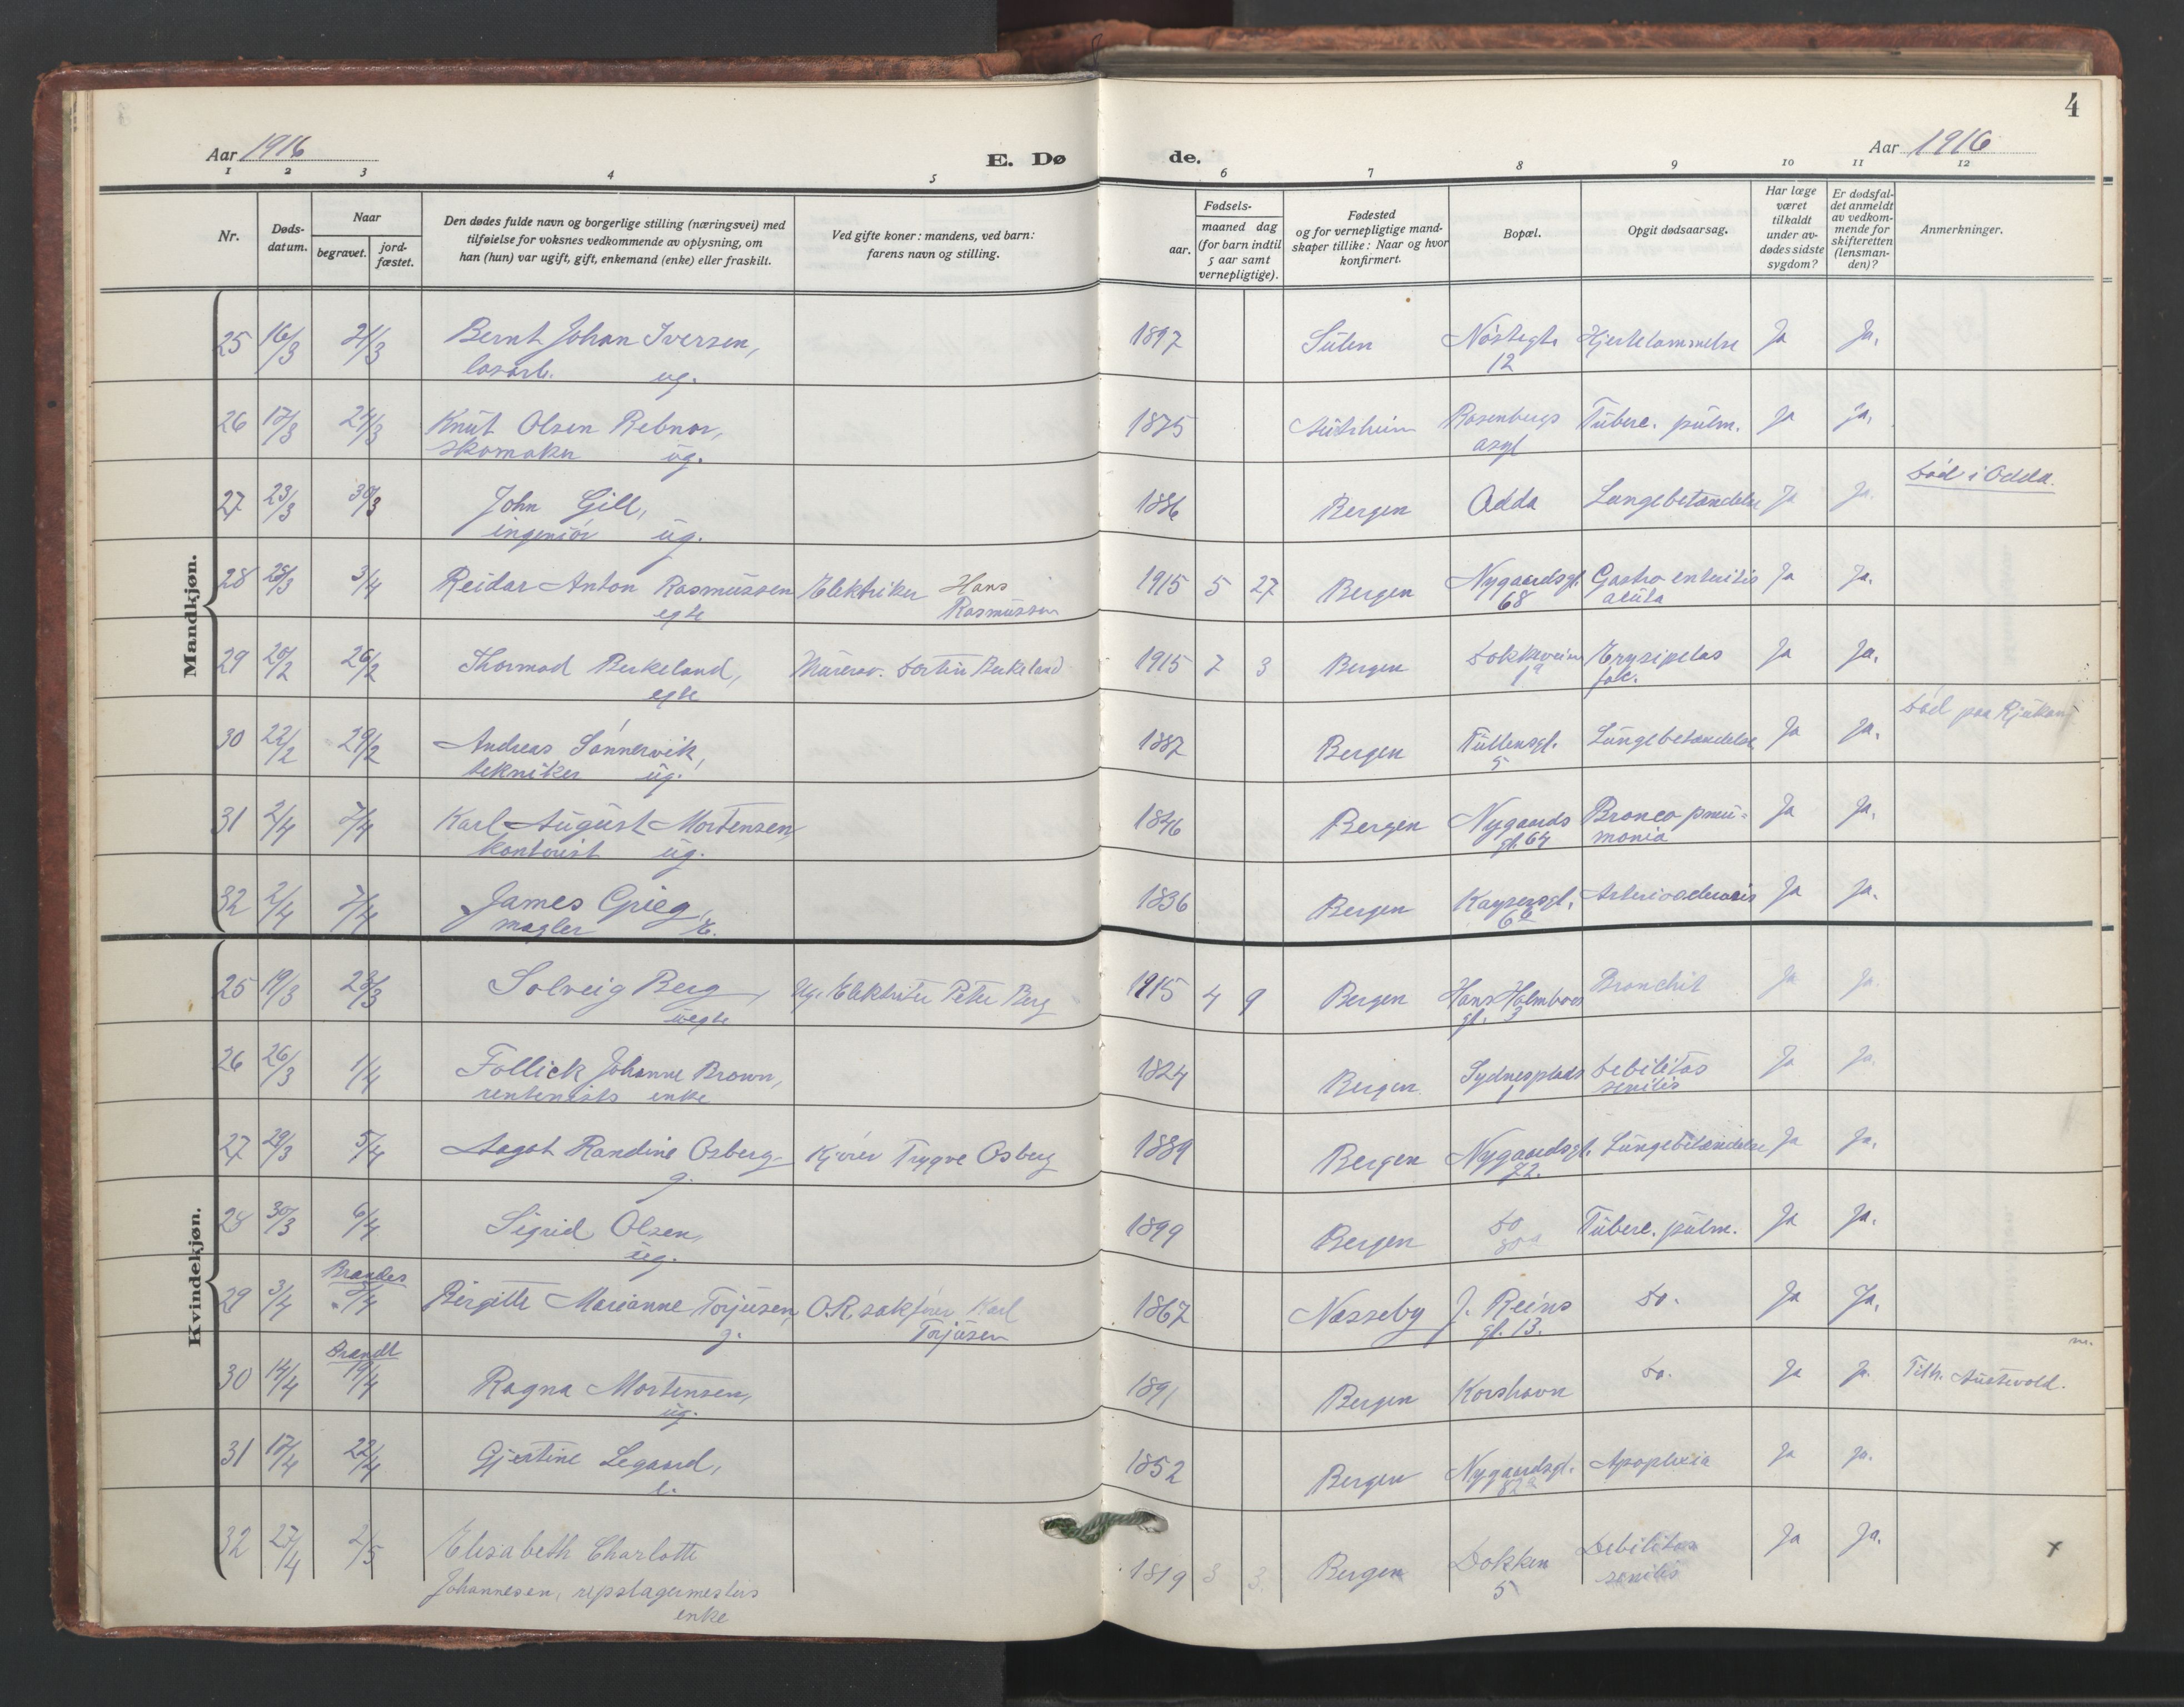 4
Aar 1916
E. Dø de.
Aar 1916
1 2 3 4 5 6 7 8 9 10 11 12
Nr.
Døds-
datum.
Naar
begravet.
jord-
fæstet.
Den dødes fulde navn og borgerlige stilling (næringsvei) med
tilføielse for voksnes vedkommende av oplysning, om
han (hun) var ugift, gift, enkemand (enke) eller fraskilt.
Ved gifte koner: mandens, ved barn:
farens navn og stilling.
Fødsels-
aar.
maaned dag
(for barn indtil
5 aar samt
vernepligtige).
Fødested
og for vernepligtige mand-
skaper tillike: Naar og hvor
konfirmert.
Bopæl.
Opgit dødsaarsag.
Har læge
været
tilkaldt
under av-
dødes sidste
sygdom?
Er dødsfal-
det anmeldt
av vedkom-
mende for
skifteretten
(lensman-
den)?
Anmerkninger.
Mandkjøn.
25 16/3 21/3 Bernt Johan Iversen, 1897 Sulen Nöstegt. Hjertelammelse Ja Ja.
losarb. ug. 12
26 17/3 24/3 Knut Olsen Rebnor, 1875 Rosenbergs Tuberc. pulm. Ja Ja.
skomaker ug. asyl
27 23/3 30/3 John Gill, 1886 Bergen Odda Lungebetændelse Ja Ja. Död i Odda.
ingeniör ug.
28 28/3 3/4 Reidar Anton Rasmussen Elektriker Hans 1915 5 27 Bergen Nygaardsgt. Gastro enteritis Ja Ja.
egte Rasmussen 68 acuta
29 20/2 26/2 Thormod Birkeland, Murerav. Birkeland 1915 7 3 Bergen Dokkeveien Erysipelas Ja Ja.
egte 1a fac.
30 22/2 29/2 Andreas Sönnervik, 1887 Bergen Tullensgt. Lungebetændelse Ja Ja. Död paa Rjukan
tekniker ug. 5
31 2/4 7/4 Karl August Mortensen, 1846 Bergen Nygaards Bronco pneu- Ja Ja.
kontorist ug. gt. 64 monia
32 2/4 7/4 James Grieg, 1836 Bergen Kaysersgt. Ja Ja.
mægler
Kvindekjøn.
25 19/3 23/3 Solveig Berg, Ug. Peter Berg 1915 4 9 Bergen Hans Holmboes Bronchit Ja Ja.
uegte gt. 3
26 26/3 1/4 Follick Johanne Brown, 1824 Bergen. Sydnesplads Debilitas Ja Ja.
rentenists enke 1 senilis
27 29/3 5/4 Aagot Randine Osberg Kjörer Trygve Osberg 1889 Bergen Nygaardsgt. Lungebetændelse Ja Ja.
g. 72.
28 30/3 6/4 Sigrid Olsen, 1899 Bergen Do Tuberc. pulm. Ja Ja.
ug. 80a
Brandes
29 3/4 8/4 Birgitte Marianne Torjusen, O.R.sakförer Karl 1867 Næsseby J. Reins Do. Ja Ja.
g. Torjusen gt. 13.
Brandt
30 14/4 19/4 Ragna Mortensen, 1891 Bergen Korshavn Do. Ja Ja. Tilh. Austevold.
ug.
31 17/4 22/4 Gjertine Legaard, 1852 Bergen Nygaardsgt. Apoplexia Ja Ja.
e. 82a
32 27/4 2/5 Elisabeth Charlotte 1819 3 3. Bergen Dokken Debilitas Ja Ja.
Johannesen, repslagermesters 5 senilis
enke